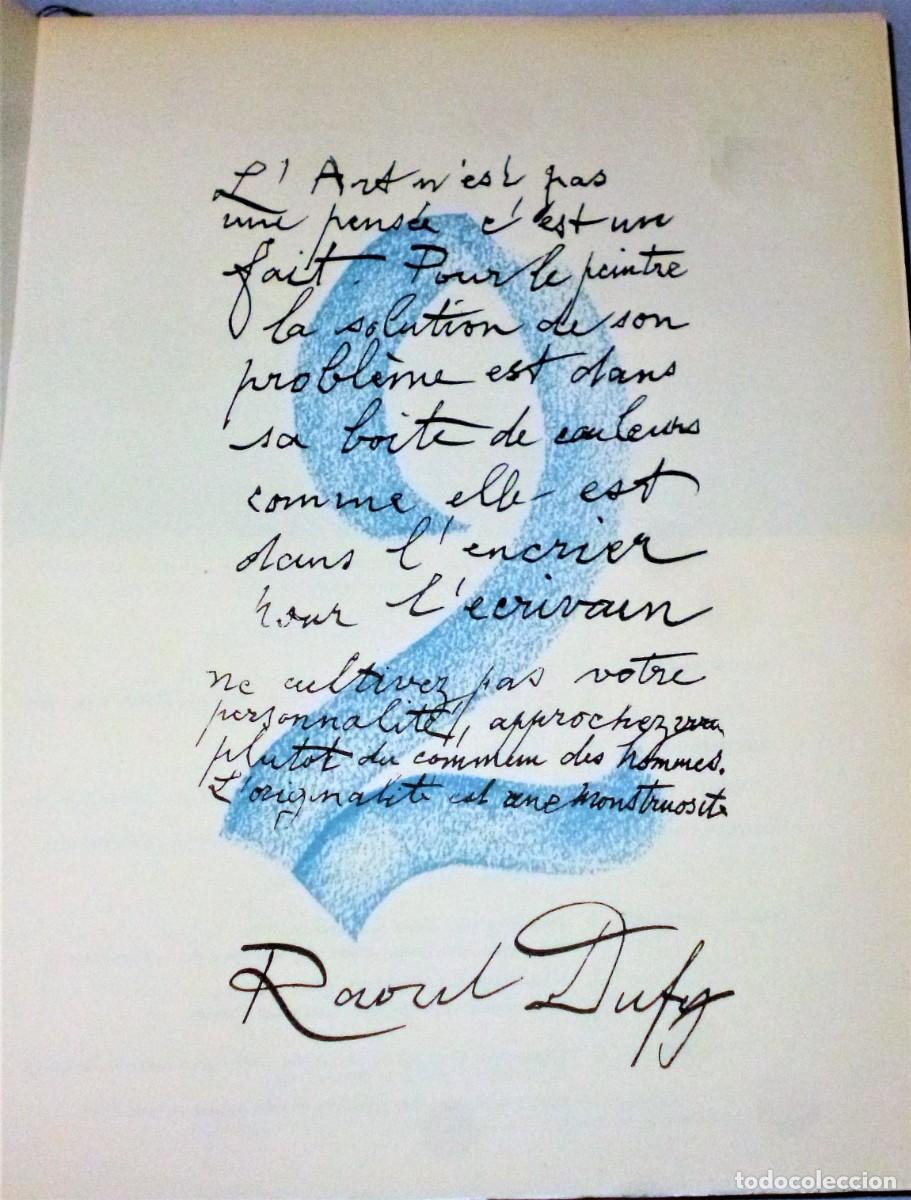 L'Art n'est pas
une pensée c'est un
fait. Pour le peintre
la solution de son
problème est dans
sa boite de couleurs
comme elle est
dans l'encrier
pour l'écrivain
ne cultivez pas votre
personnalité, approchez
plutot du commun des hommes.
L'originalité est une monstruosité
2
Raoul Dufy
todocoleccion